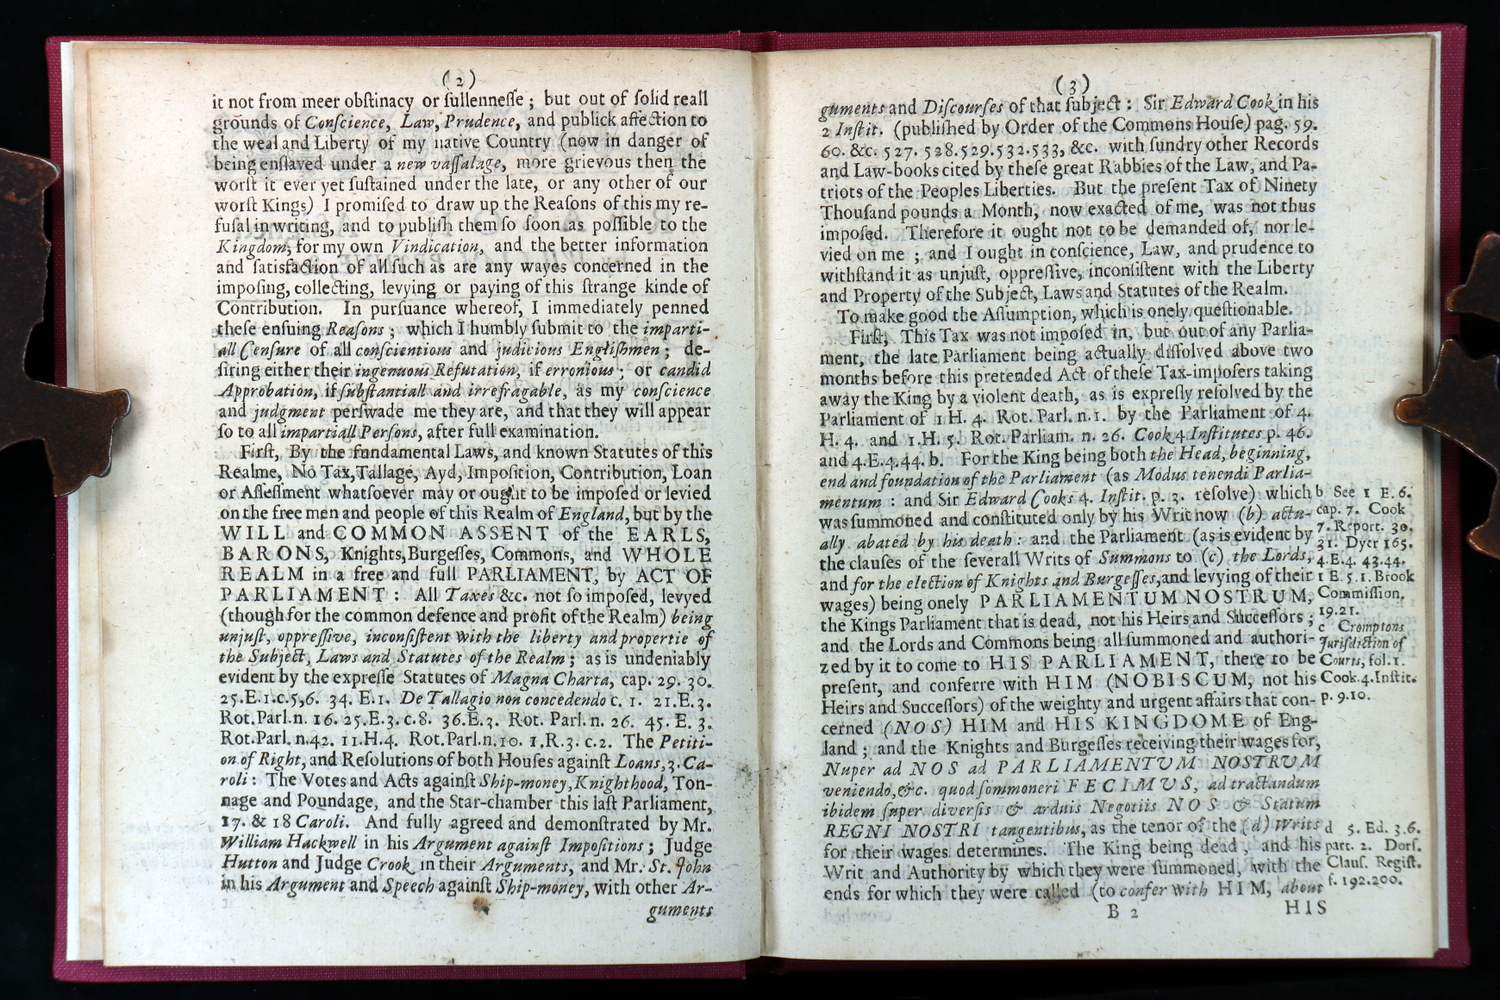 (2)
it not from meer obſtinacy or ſullenneſſe ; but out of ſolid reall
grounds of Conſcience, Law, Prudence, and publick affection to
the weal and Liberty of my native Country (now in danger of
being enſlaved under a new vaſſalage, more grievous then the
worſt it ever yet ſuſtained under the late, or any other of our
worſt Kings) I promiſed to draw up the Reaſons of this my re-
fuſal in writing, and to publiſh them ſo ſoon as poſſible to the
Kingdom, for my own Vindication, and the better information
and ſatisfaction of all ſuch as are any wayes concerned in the
impoſing, collecting, levying or paying of this ſtrange kinde of
Contribution. In purſuance whereof, I immediately penned
theſe enſuing Reaſons ; which I humbly ſubmit to the imparti-
all Cenſure of all conſcientious and judicious Engliſhmen ; de-
ſiring either their ingenuous Refutation, if erronious ; or candid
Approbation, if ſubſtantiall and irrefragable, as my conſcience
and judgment perſwade me they are, and that they will appear
ſo to all impartiall Perſons, after full examination.
Firſt, By the fundamental Laws, and known Statutes of this
Realme, No Tax,Tallage, Ayd, Impoſition, Contribution, Loan
or Aſſeſſment whatſoever may or ought to be impoſed or levied
on the free men and people of this Realm of England, but by the
WILL and COMMON ASSENT of the EARLS,
BARONS, Knights,Burgeſſes, Commons, and WHOLE
REALM in a free and full PARLIAMENT, by ACT OF
PARLIAMENT : All Taxes &c. not ſo impoſed, levyed
(though for the common defence and profit of the Realm) being
unjuſt, oppreſſive, inconſiſtent with the liberty and propertie of
the Subject, Laws and Statutes of the Realm ; as is undeniably
evident by the expreſſe Statutes of Magna Charta, cap. 29. 30.
25.E.1.c.5,6. 34. E.1. De Tallagio non concedendo c. 1. 21.E.3.
Rot.Parl.n. 16. 25.E.3.c.8. 36.E.3. Rot. Parl. n. 26. 45. E. 3.
Rot.Parl. n.42. 11.H.4. Rot.Parl.n.10. 1.R.3. c.2. The Petiti-
on of Right, and Reſolutions of both Houſes againſt Loans,3.Ca-
roli : The Votes and Acts againſt Ship-money,Knighthood, Ton-
nage and Poundage, and the Star-chamber this laſt Parliament,
17. & 18 Caroli. And fully agreed and demonſtrated by Mr.
William Hackwell in his Argument againſt Impoſitions ; Judge
Hutton and Judge Crook in their Arguments, and Mr. St. John
in his Argument and Speech againſt Ship-money, with other Ar-
guments
(3)
guments and Diſcourſes of that ſubject : Sir Edward Cook in his
2 Inſtit. (publiſhed by Order of the Commons Houſe) pag. 59.
60. &c. 527. 528.529.532.533, &c. with ſundry other Records
and Law-books cited by theſe great Rabbies of the Law, and Pa-
triots of the Peoples Liberties. But the preſent Tax of Ninety
Thouſand pounds a Month, now exacted of me, was not thus
impoſed. Therefore it ought not to be demanded of, nor le-
vied on me ; and I ought in conſcience, Law, and prudence to
withſtand it as unjuſt, oppreſſive, inconſiſtent with the Liberty
and Property of the Subject, Laws and Statutes of the Realm.
To make good the Aſſumption, which is onely queſtionable.
Firſt, This Tax was not impoſed in, but out of any Parlia-
ment, the late Parliament being actually diſſolved above two
months before this pretended Act of theſe Tax-impoſers taking
away the King by a violent death, as is expreſly reſolved by the
Parliament of 1 H. 4. Rot. Parl. n. 1. by the Parliament of 4.
H. 4. and 1.H. 5. Rot. Parliam. n. 26. Cook 4 Inſtitutes p. 46.
and 4.E.4.44. b. For the King being both the Head, beginning,
end and foundation of the Parliament (as Modus tenendi Parlia-
mentum : and Sir Edward Cooks 4. Inſtit. p. 3. reſolve) which
was ſummoned and conſtituted only by his Writ now (b) actu-
ally abated by his death : and the Parliament (as is evident by
the clauſes of the ſeverall Writs of Summons to (c) the Lords,
and for the election of Knights and Burgeſſes,and levying of their
wages) being onely PARLIAMENTUM NOSTRUM,
the Kings Parliament that is dead, not his Heirs and Succeſſors ;
and the Lords and Commons being all ſummoned and authori-
zed by it to come to HIS PARLIAMENT, there to be
preſent, and conferre with HIM (NOBISCUM, not his
Heirs and Succeſſors) of the weighty and urgent affairs that con-
cerned (NOS) HIM and HIS KINGDOME of Eng-
land ; and the Knights and Burgeſſes receiving their wages for,
Nuper ad NOS ad PARLIAMENTVM NOSTRVM
veniendo,&c. quod ſommoneri FECIMVS, ad tractandum
ibidem ſuper diverſis & arduis Negotiis NOS & Statum
REGNI NOSTRI tangentibus, as the tenor of the (d) Writs
for their wages determines. The King being dead, and his
Writ and Authority by which they were ſummoned, with the
ends for which they were called (to confer with HIM, about
b See 1 E. 6.
cap. 7. Cook
7. Report. 30.
31. Dyer 165.
4.E.4. 43.44.
1 E. 5.1. Brook
Commiſſion,
19.21.
c Cromptons
Juriſdiction of
Courts, fol.1.
Cook.4.Inſtit.
p. 9.10.
d 5. Ed. 3.6.
part. 2. Dorſ.
Clauſ. Regiſt.
f. 192.200.
B 2
HIS